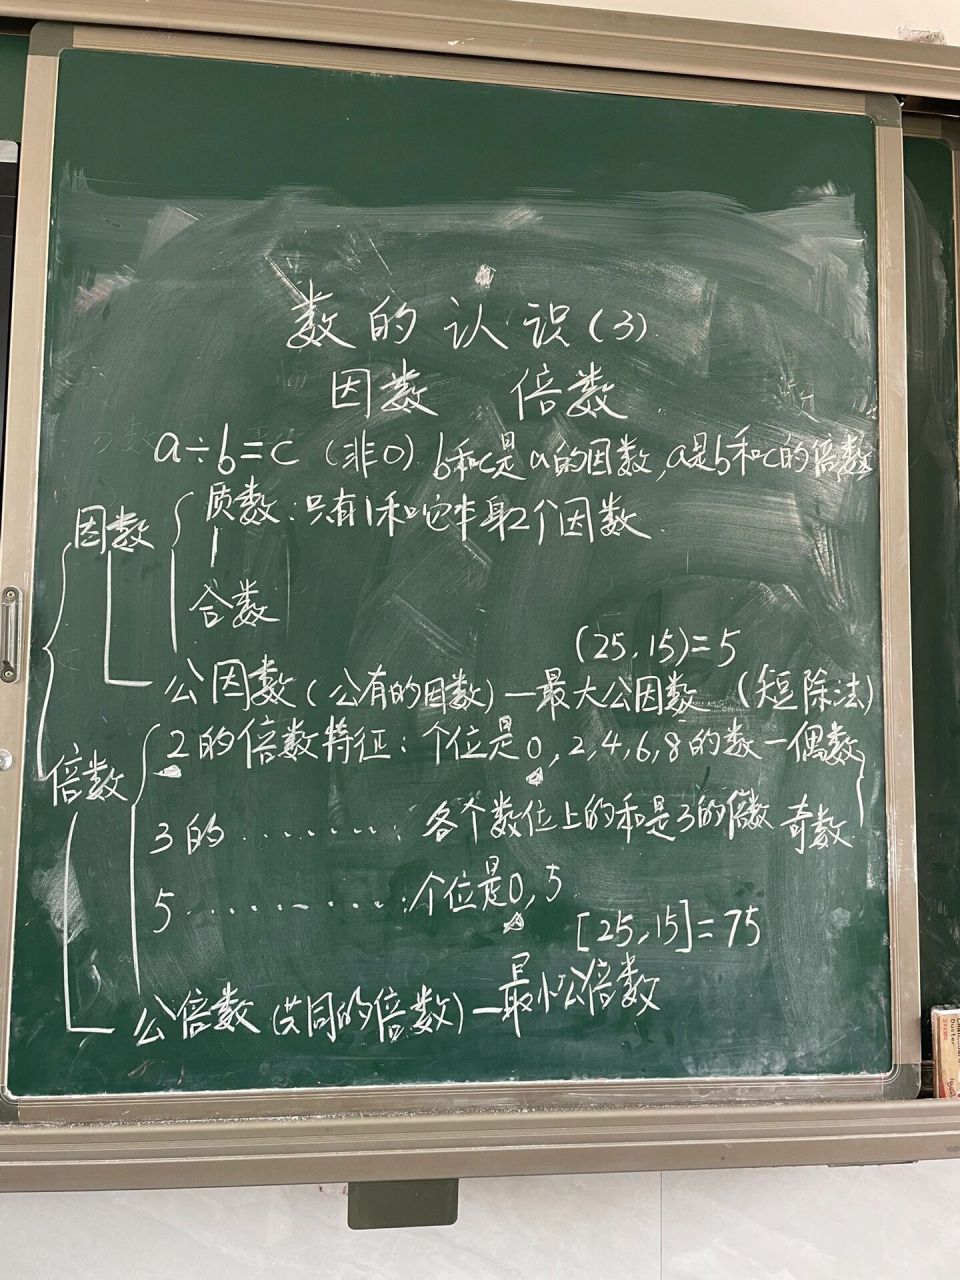 数的认识(3)
因数 倍数
a÷b=c (非0) b和c是a的因数,a是b和c的倍数
因数
质数:只有1和它本身2个因数
合数
(25,15)=5
公因数(公有的因数)—最大公因数 (短除法)
倍数
2的倍数特征:个位是0,2,4,6,8的数—偶数
3的········:各个数位上的和是3的倍数 奇数
5··········:个位是0,5
[25,15]=75
公倍数(共同的倍数)—最小公倍数
Duster